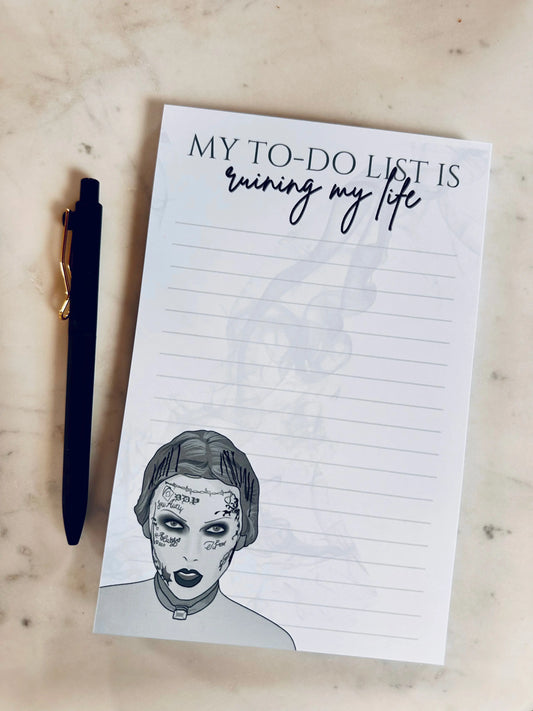 MY TO-DO LIST IS
ruining my life